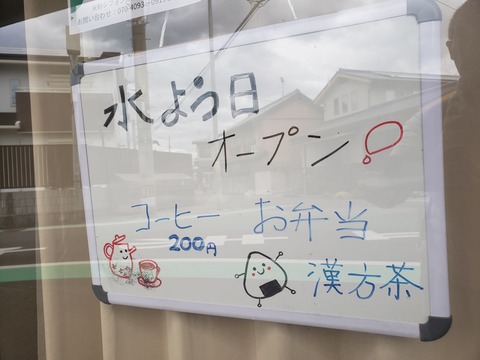 水よう日
オープン!
コーヒー お弁当
200円
漢方茶